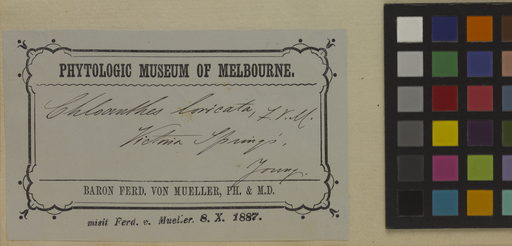 PHYTOLOGIC MUSEUM OF MELBOURNE.
Chloanthes loricata, F.v.M.
Victoria Springs.
Young.
BARON FERD. VON MUELLER, PH. & M.D.
misit Ferd. v. Mueller. 8. X. 1887.